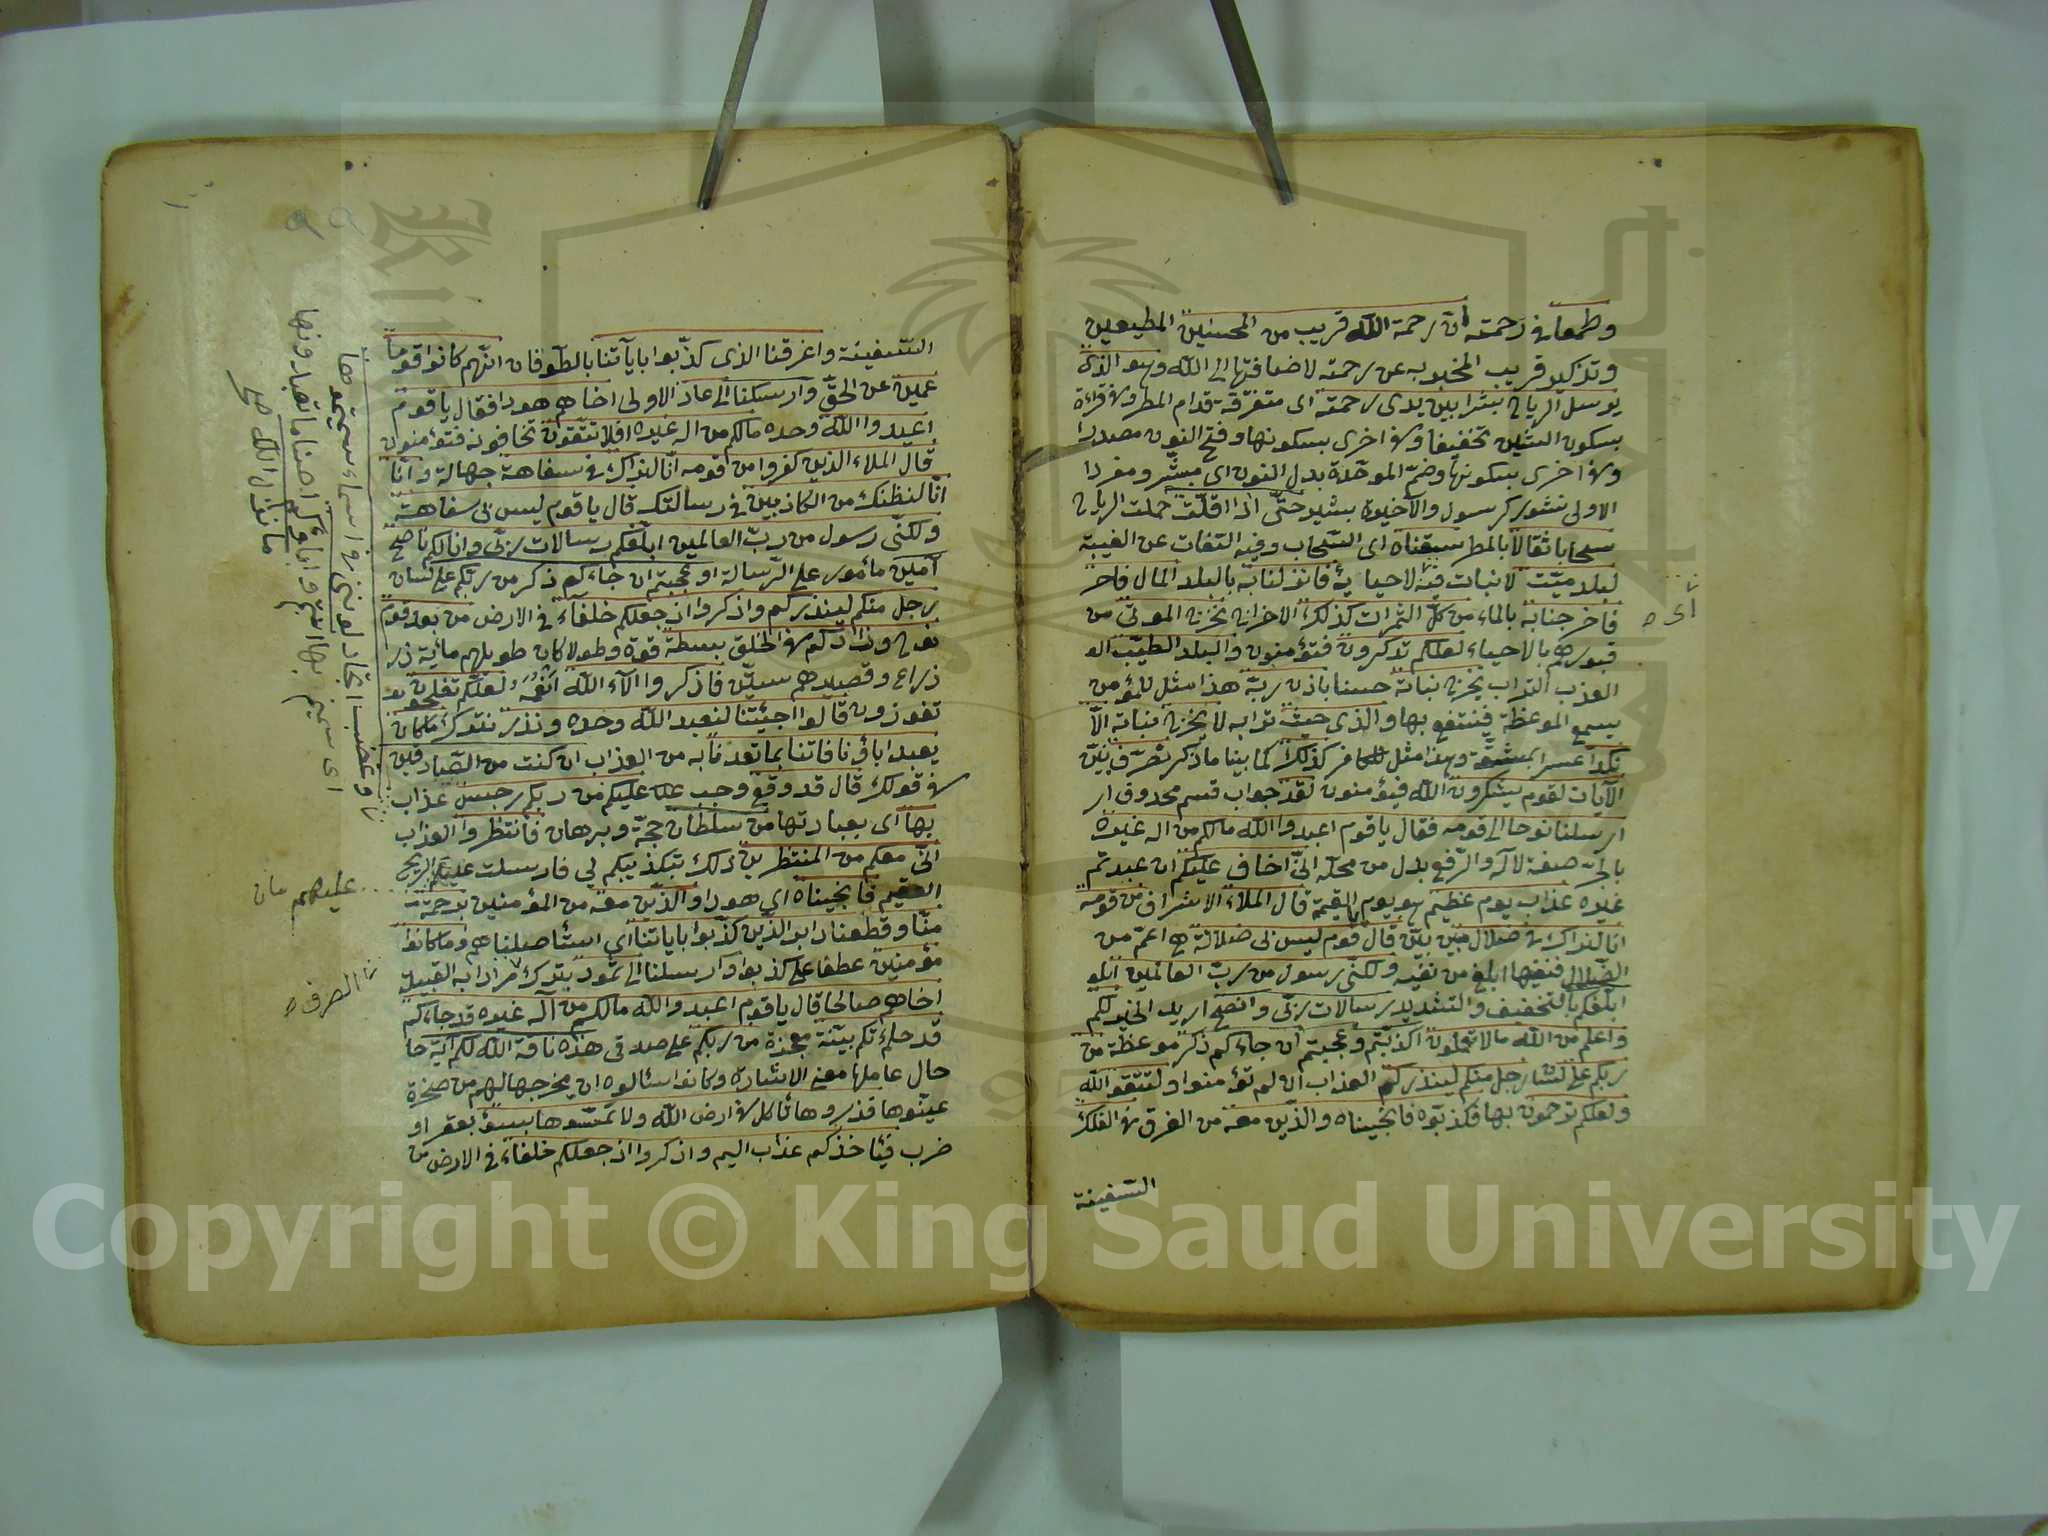 وطمعا في رحمته ان رحمة الله قريب من المحسنين المطيعين
وتذكير قريب المخبر به عن رحمة لاضافتها الى الله وهو الذى
يرسل الرياح بشرا بين يدى رحمته اى متفرقة قدام المطر وفي قراءة
بسكون الشين تخفيفا وفي اخرى بسكونها وفتح النون مصدرا
وفي اخرى بسكونها وضم الموحدة بدل النون اى مبشر ومفرد
الاولى نشور كرسول والآخيرة بشير حتى اذا اقلت حملت الرياح
سحابا ثقالا بالمطر سقناه اى السحاب وفيه التفات عن الغيبة
لبلد ميت لانبات فيه لاحيائه فانزلنا به بالبلد المال فاخر
فاخرجنا به بالماء من كل الثمرات كذلك الاخراج نخرج الموتى من
قبورهم بالاحياء لعلكم تذكرون فتؤمنون والبلد الطيب الع
العذب التراب يخرج نباته حسنا باذن ربه هذا مثل للمؤمن
يسمع الموعظة فينتفع بها والذى خبث ترابه لا يخرج نباته الا
نكدا عسرا بمشقة وهذا مثل للكافر كذلك كما بينا ماذكر نصرف نبين
الآيات لقوم يشكرون الله فيؤمنون لقد جواب قسم محذوف ار
ارسلنا نوحا الى قومه فقال ياقوم اعبدوا الله مالكم من اله غيره
بالجر صفة لاله والرفع بدل من محله انى اخاف عليكم ان عبدتم
غيره عذاب يوم عظيم هو يوم القيمة قال الملاء الاشراف من قومه
انا لنراك في ضلال مبين بين قال ياقوم ليس لى ضلالة هى اعم من
الضلال فنفيها ابلغ من نفيه ولكنى رسول من رب العالمين ابلغ
ابلغكم بالتخفيف والتشديد رسالات ربى وانصح اريد الخير لكم
واعلم من الله مالا تعلمون اكذبتم وعجبتم ان جاءكم ذكر موعظة من
ربكم على لسان رجل منكم لينذركم العذاب ان لم تؤمنوا ولتتقوا الله
ولعلكم ترحمون بها فكذبوه فانجيناه والذين معه من الغرق في الفلك
السفينة
اى
السفينة واغرقنا الذى كذبوا بايآتنا بالطوفان انهم كانوا قوما
عمين عن الحق وارسلنا الى عاد الاولى اخاهم هودا فقال ياقوم
اعبدوا الله وحده مالكم من اله غيره افلا تتقون تخافونه فتؤمنون
قال الملاء الذين كفروا من قومه انا لنراك في سفاهة جهالة وانا
انا لنظنك من الكاذبين في رسالتك قال ياقوم ليس بى سفاهة
ولكنى رسول من رب العالمين ابلغكم رسالات ربى وانا لكم ناصح
آمين مأمور على الرسالة او عجبتم ان جاءكم ذكر من ربكم على لسان
رجل منكم لينذركم واذكروا اذ جعلكم خلفاء في الارض من بعد قوم
نوح وزادكم في الخلق بسطة قوة وطولا كان طويلهم مائة ذر
ذراع وقصيرهم ستين فاذكروا الآء الله نعمه لعلكم تفلحون تفو
تفوزون قالوا اجئتنا لنعبد الله وحده ونذر نترك ماكان
يعبد اباؤنا فاتنا بما تعدنا به من العذاب ان كنت من الصادقين
في قولك قال قد وقع وجب عليكم من ربكم رجس عذاب
بها اى بعبادتها من سلطان حجة وبرهان فانتظروا العذاب
انى معكم من المنتظرين ذلك بتكذيبكم لي فارسلت عليهم الريح
العقيم فانجيناه اي هودا والذين معه من المؤمنين برحمة
منا وقطعنا دابر الذين كذبوا باياتنا اي استأصلناهم وماكانوا
مؤمنين عطفا على كذبوا وارسلنا الى ثمود بترك مرادا به القبيلة
اخاهم صالحا قال ياقوم اعبدوا الله مالكم من اله غيره قد جاءكم
قد جاءتكم بينة معجزة من ربكم على صدقى هذه ناقة الله لكم اية حا
حال عاملها معنى الاشارة وكانوا سألوه ان يخرجها لهم من صخرة
عينوها فذروها تأكل في ارض الله ولا تمسوها بسوء بعقر او
ضرب فيأخذكم عذاب اليم واذكروا اذ جعلكم خلفاء في الارض من
وغضب اتجادلوننى في اسماء سميتموها
اى سميتم بها انتم واباؤكم اصناما تعبدونها
مانزل الله صح
عليهم
الصرف
٩٩
Copyright © King Saud University